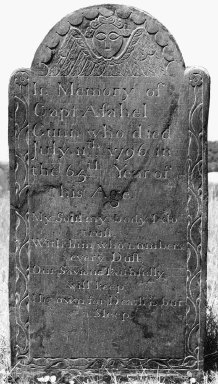 In Memory of
Capt Asahel
Gunn who died
July 11th 1796 in
the 65th Year of
his Age.
My Soul my Body I do
trust
With him who numbers
every Dust
Our Saviour Faithfully
will keep
His own for Death is but
a Sleep